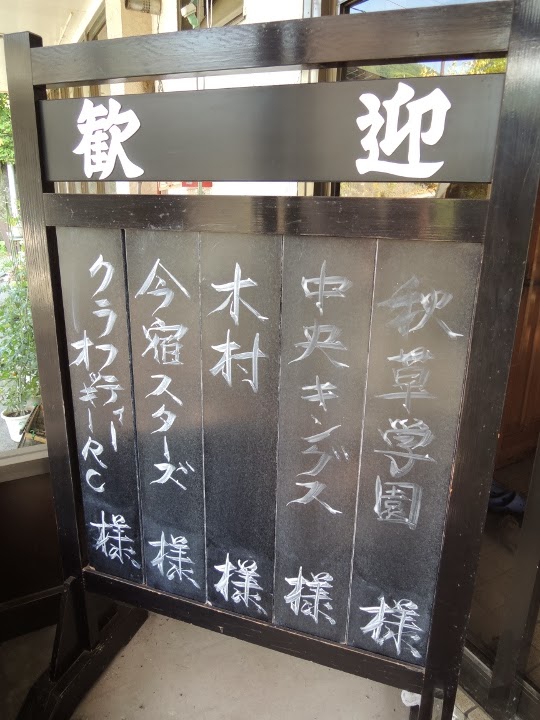 歓迎
秋草学園 様
中央キングス 様
木村 様
今宿スターズ 様
クラフティーオギーRC 様